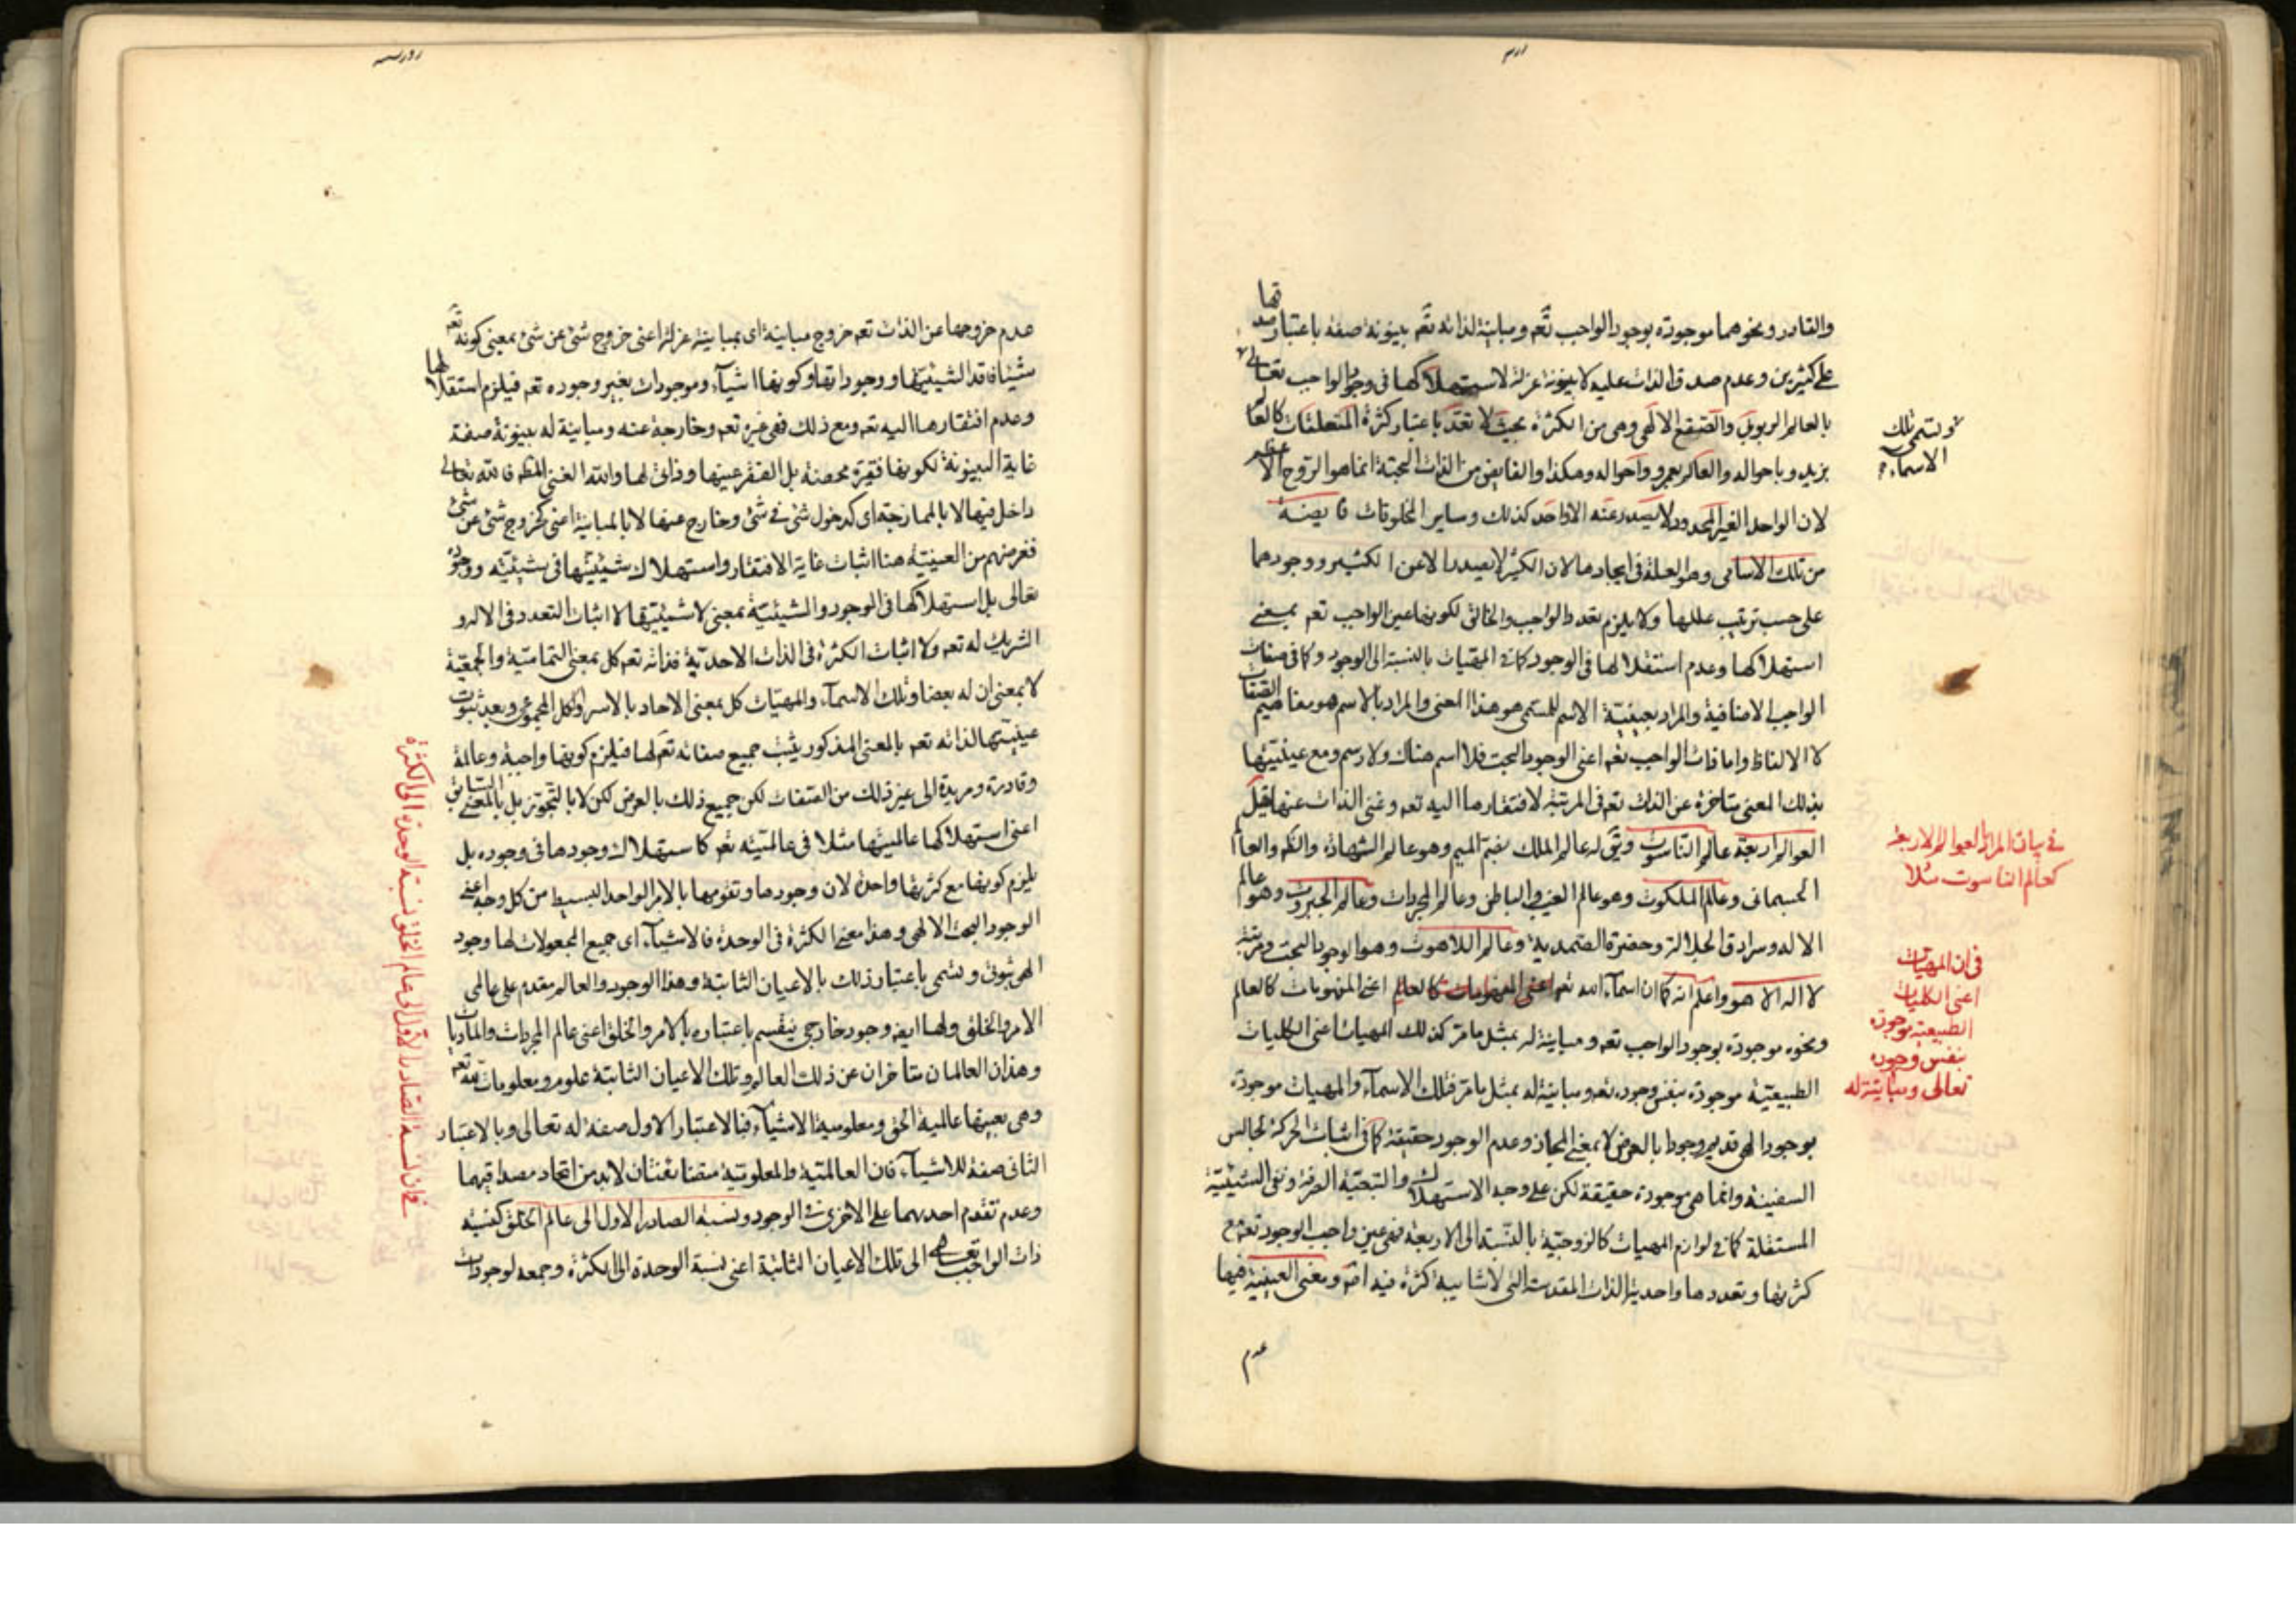 والقادر ونحوهما موجودة بوجود الواجب تعم ومباينة لذاته تعم بينونة صفة باعتبار صدقها
على كثيرين وعدم صدق الذات عليه لا بينونة عزلة لاستهلاكها في وجود الواجب تعالى
بالعالم الربوبى والصقع الالهى وهى من الكثرة بحيث لا تعد باعتبار كثرة المتعلقات كالعا
بزيد وباحواله والعالم بعمرو واحواله وهكذا والفايض من الذات البحتة انما هو الروح الا
لان الواحد الغير المحدود لا يصدر عنه الا واحد كذلك وساير المخلوقات فايضة
من تلك الاسامى وهو العلة فى ايجادها لان الكثير لا يصدر الا عن الكثير ووجودها
على حسب ترتيب عللها ولا يلزم تعدد الواجب والخالق لكونها عين الواجب تعم بمعنى
استهلاكها وعدم استقلالها فى الوجود كما فى المهيات بالنسبة الى الوجود وكما فى صفات
الواجب الاضافية والمراد بعينية الاسم للمسمى هو هذا المعنى والمراد بالاسم هو مفاهيم الصفات
لا الالفاظ واما ذات الواجب تعم اعنى الوجود البحت فلا اسم هناك ولا رسم ومع عينيتها
بذلك المعنى متاخرة عن الذات تعم فى المرتبة لافتقارها اليه تعم وغنى الذات عنها قيل
العوالم اربعة عالم الناسوت ويق له عالم الملك بضم الميم وهو عالم الشهادة والكم والعالم
الجسمانى وعالم الملكوت وهو عالم الغيب والباطن وعالم المجردات وعالم الجبروت وهو عالم
الاله وسرادق الجلالة وحضرة الصمدية وعالم اللاهوت وهو الوجود البحت ومرتبة
لا اله الا هو واعلم انه كما ان اسماء الله تعم اعنى المفهومات كالعالم
ونحوه موجودة بوجود الواجب تعم ومباينة له بمثل ما مر كذلك المهيات اعنى الكليات
الطبيعية موجودة بنفس وجوده تعم ومباينة له بمثل ما مر فتلك الاسماء والمهيات موجودة
بوجود الهى قديم وجودا بالعرض لا بمعنى المجاز وعدم الوجود حقيقة كما فى اثبات الحركة لجالس
السفينة وانما هى موجودة حقيقة لكن على وجه الاستهلاك والتبعية الصرفة ونفى الشيئية
المستقلة كما فى لوازم المهيات كالزوجية بالنسبة الى الاربعة فهى عين واجب الوجود تعم مع
كثرتها وتعددها واحدية الذات المقدسة التى لا شايبة كثرة فيه اصلا ومعنى العينية فيها
عدم
وتسمى تلك
الاسماء
فى بيان المراد العوالم الاربعة
كعالم الناسوت مثلا
فى ان المهيات
اعنى الكليات
الطبيعية موجودة
بنفس وجوده
تعالى ومباينة له
عدم خروجها عن الذات تعم خروج مباينة اى بمباينة عزلة اعنى خروج شئ عن شئ بمعنى كونه تعم
شيئا فاقد الشيئيتها ووجوداتها وكونها اشياء وموجودات بغير وجوده تعم فيلزم استقلالها
وعدم افتقارها اليه تعم ومع ذلك فهى غيره تعم وخارجة عنه ومباينة له بينونة صفة
غاية البينونة لكونها فقيرة محضة بل الفقر عينها وذاتى لها والله الغنى المطلق فالله تعالى
داخل فيها لا بالممازجة اى كدخول شئ فى شئ وخارج عنها لا بالمباينة اعنى كخروج شئ عن شئ
فغرضهم من العينية هنا اثبات غاية الافتقار واستهلاك شيئيتها فى شيئيته ووجوده
تعالى بل استهلاكها فى الوجود والشيئية بمعنى لا شيئيتها لا اثبات التعدد فى الاله و
الشريك له تعم ولا اثبات الكثرة فى الذات الاحدية فذاته تعم كل بمعنى التمامية والجمعية
لا بمعنى ان له بعضا وتلك الاسماء والمهيات كل بمعنى الاحاد بالاسر والكل المجموعى وبعد ثبوت
عينيتها لذاته تعم بالمعنى المذكور يثبت جميع صفاته تعم لها فيلزم كونها واجبة وعالمة
وقادرة ومريدة الى غير ذلك من الصفات لكن جميع ذلك بالعرض لكن لا بالتجوز بل بالمعنى السابق
اعنى استهلاكها عالميتها مثلا فى عالميته تعم كاستهلاك وجودها فى وجوده بل
يلزم كونها مع كثرتها واحدة لان وجودها وتقومها بالامر الواحد البسيط من كل وجه اعنى
الوجود البحت الالهى وهذا معنى الكثرة فى الوحدة فالاشياء اى جميع المجعولات لها وجود
الهى ثبوتى وتسمى باعتبار ذلك بالاعيان الثابتة وهذا الوجود والعالم مقدم على عالمى
الامر والخلق ولها ايضا وجود خارجى ينقسم باعتباره بالامر والخلق اعنى عالم المجردات والماديات
وهذان العالمان متاخران عن ذلك العالم وتلك الاعيان الثابتة علوم ومعلومات لله تعم
وهى بعينها عالمية الحق ومعلومية الاشياء فبالاعتبار الاول صفة له تعالى وبالاعتبار
الثانى صفة للاشياء فان العالمية والمعلومية متضايفتان لا بد من اتحاد مصداقيهما
وعدم تقدم احدهما على الاخرى فى الوجود ونسبة الصادر الاول الى عالم الخلق كنسبة
ذات الواجب تعالى الى تلك الاعيان الثابتة اعنى نسبة الوحدة الى الكثرة وجمعه لوجودات
فى ان نسبة الصادر الاول الى عالم الخلق نسبة الوحدة الى الكثرة